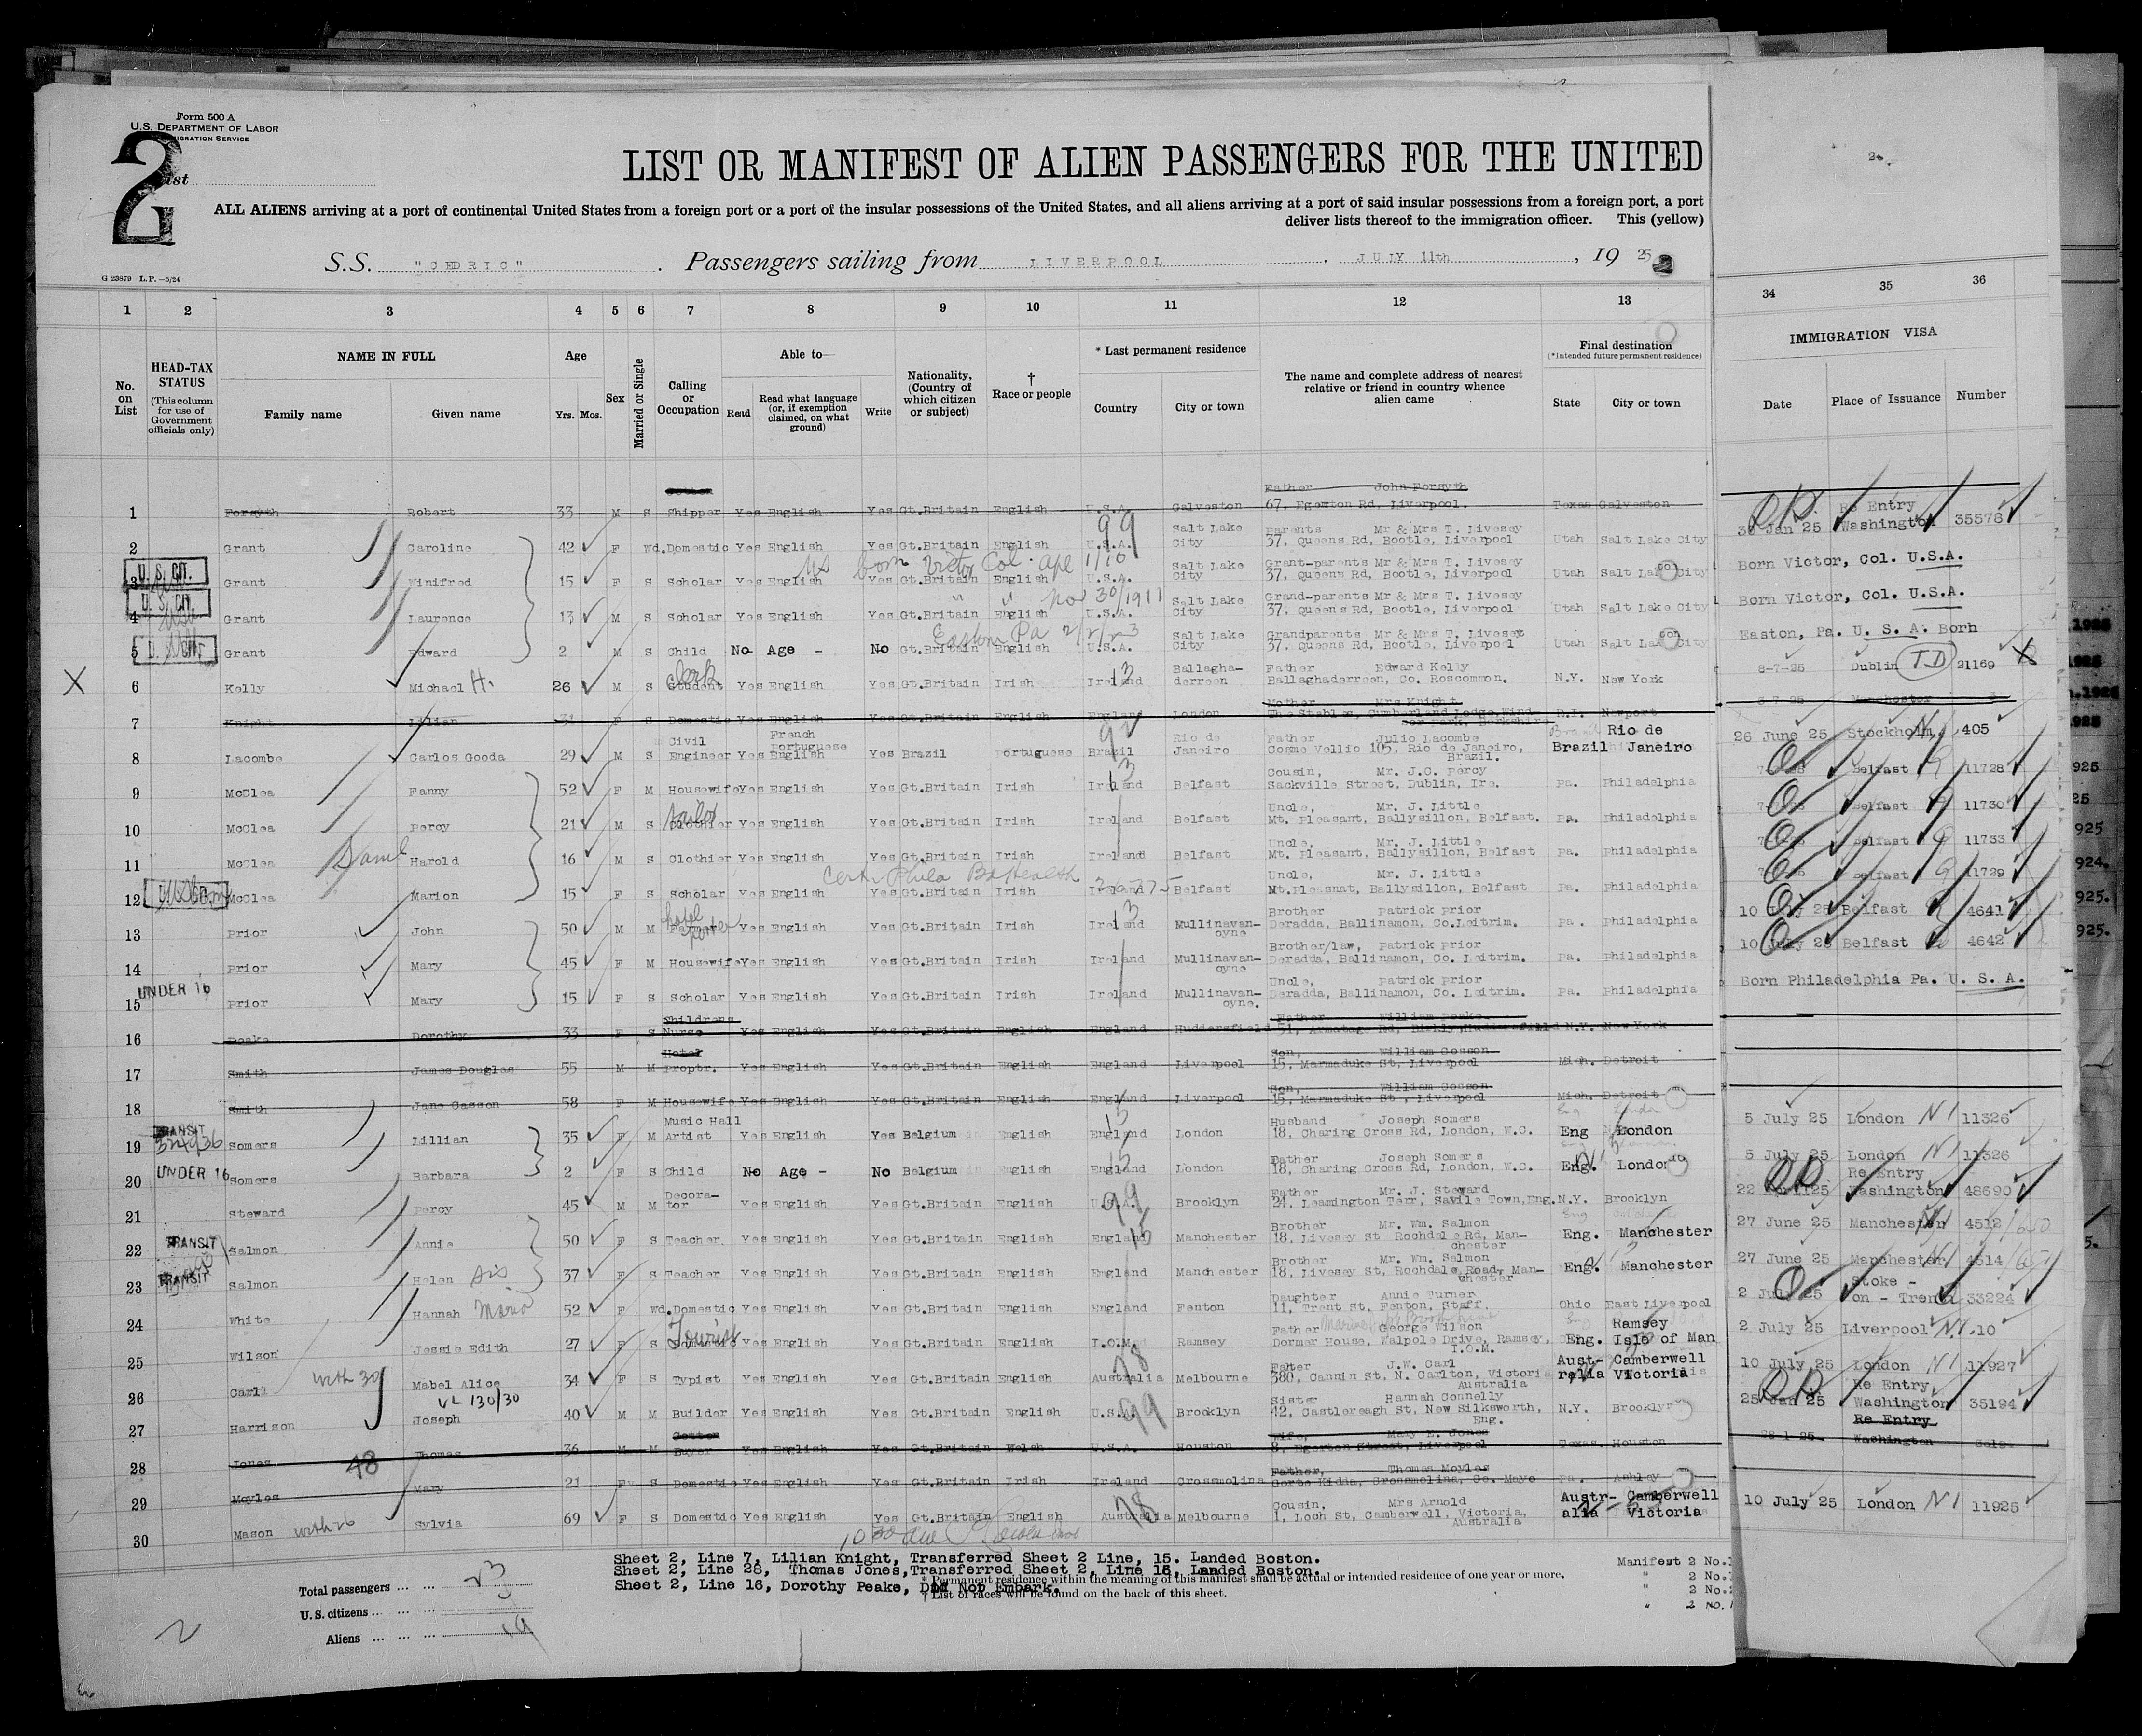 Form 500 A
U.S. DEPARTMENT OF LABOR
IGRATION SERVICE
2
List
LIST OR MANIFEST OF ALIEN PASSENGERS FOR THE UNITED
ALL ALIENS arriving at a port of continental United States from a foreign port or a port of the insular possessions of the United States, and all aliens arriving at a port of said insular possessions from a foreign port, a port
deliver lists thereof to the immigration officer. This (yellow)
S.S. "CEDRIC". Passengers sailing from LIVERPOOL, JULY 11th, 1925
G 23879 L.P.—5/24
1 2 3 4 5 6 7 8 9 10 11 12 13 34 35 36
No. on List
HEAD-TAX STATUS (This column for use of Government officials only)
NAME IN FULL
Family name Given name
Age
Yrs. Mos.
Sex
Married or Single
Calling or Occupation
Able to—
Read
Read what language (or, if exemption claimed, on what ground)
Write
Nationality, (Country of which citizen or subject)
† Race or people
* Last permanent residence
Country City or town
The name and complete address of nearest relative or friend in country whence alien came
Final destination
(*Intended future permanent residence)
State City or town
IMMIGRATION VISA
Date Place of Issuance Number
1 Forsyth Robert 33 M S Shipper Yes English Yes Gt.Britain English U.S.A. Galveston Father John Forsyth 67, Egerton Rd, Liverpool. Texas Galveston 30 Jan 25 Re Entry Washington 35578
2 Grant Caroline 42 F Wd. Domestic Yes English Yes Gt.Britain English U.S.A. Salt Lake City Parents Mr & Mrs T. Livesey 37, Queens Rd, Bootle, Liverpool Utah Salt Lake City
U.S. CIT. 3 Grant Winifred 15 F S Scholar Yes English Yes Gt.Britain English U.S.A. Salt Lake City Grant-parents Mr & Mrs T. Livesey 37, Queens Rd, Bootle, Liverpool Utah Salt Lake City Born Victor, Col. U.S.A.
U.S. CIT. 4 Grant Laurence 13 M S Scholar Yes English Yes Gt.Britain English U.S.A. Salt Lake City Grand-parents Mr & Mrs T. Livesey 37, Queens Rd, Bootle, Liverpool Utah Salt Lake City Born Victor, Col. U.S.A.
5 Grant Edward 2 M S Child No Age - No Gt.Britain English U.S.A. Salt Lake City Grandparents Mr & Mrs T. Livesey 37, Queens Rd, Bootle, Liverpool Utah Salt Lake City Easton, Pa. U. S. A. Born
X 6 Kelly Michael H. 26 M S Student Clerk Yes English Yes Gt.Britain Irish Ireland Ballagha-derreen Father Edward Kelly Ballaghaderreen, Co. Roscommon. N.Y. New York 8-7-25 Dublin TD 21169
7 Knight Lilian 31 F S Domestic Yes English Yes Gt.Britain English England London Mother Mrs Knight The Stables, Cumberland Lodge, Wind-sor Park, Berkshire R.I. Newport Manchester
8 Lacombe Carlos Gooda 29 M S Civil Engineer Yes French Portuguese English Yes Brazil Portuguese Brazil Rio de Janeiro Father Julio Lacombe Cosme Vellio 105, Rio de Janeiro, Brazil. Brazil Rio de Janeiro 26 June 25 Stockholm 405
9 McClea Fanny 52 F M Housewife Yes English Yes Gt.Britain Irish Ireland Belfast Cousin, Mr. J.C. Percy Sackville Street, Dublin, Ire. Pa. Philadelphia Belfast 11728
10 McClea Percy 21 M S Clothier Tailor Yes English Yes Gt.Britain Irish Ireland Belfast Uncle, Mr. J. Little Mt. Pleasant, Ballysillon, Belfast. Pa. Philadelphia Belfast 11730
11 McClea Saml Harold 16 M S Clothier Yes English Yes Gt.Britain Irish Ireland Belfast Uncle, Mr. J. Little Mt. Pleasant, Ballysillon, Belfast Pa. Philadelphia Belfast 11733
12 McClea Marion 15 F S Scholar Yes English Yes Gt.Britain Irish Belfast Uncle, Mr. J. Little Mt.Pleasnat, Ballysillon, Belfast Pa. Philadelphia Belfast 11729
13 Prior John 50 M M hotel porter Yes English Yes Gt.Britain Irish Ireland Mullinavan-oyne Brother Patrick Prior Deradda, Ballinamon, Co.Leitrim. Pa. Philadelphia 10 July 25 Belfast 4641
14 Prior Mary 45 F M Housewife Yes English Yes Gt.Britain Irish Ireland Mullinavan-oyne Brother/law, Patrick Prior Deradda, Ballinamon, Co. Leitrim. Pa. Philadelphia 10 July 25 Belfast 4642
UNDER 16 15 Prior Mary 15 F S Scholar Yes English Yes Gt.Britain Irish Ireland Mullinavan-oyne. Uncle, Patrick Prior Deradda, Ballinamon, Co. Leitrim. Pa. Philadelphia Born Philadelphia Pa. U. S. A.
16 Peake Dorothy 33 F S Childrens Nurse Yes English Yes Gt.Britain English England Huddersfield Father William Peake N.Y. New York
17 Smith James Douglas 55 M M Hotel Proptr. Yes English Yes Gt.Britain English England Liverpool Son, William Cosson 15, Marmaduke St, Liverpool Mich. Detroit
18 Smith Jane Casson 58 F M Housewife Yes English Yes Gt.Britain English England Liverpool Son, William Cosson 15, Marmaduke St, Liverpool Mich. Detroit
TRANSIT 19 Somers Lillian 35 F M Music Hall Artist Yes English Yes Belgium English England London Husband Joseph Somers 18, Charing Cross Rd, London, W.C. Eng London 5 July 25 London N1 11326
UNDER 16 20 Somers Barbara 2 F S Child No Age - No Belgium English England London Father Joseph Somers 18, Charing Cross Rd, London, W.C. Eng. London 5 July 25 London N1 11326
21 Steward Percy 45 M M Decora-tor Yes English Yes Gt.Britain English U.S.A. Brooklyn Father Mr. J. Steward 24, Leamington Terr, Savile Town, Eng. N.Y. Brooklyn Re Entry Washington 48690
TRANSIT 22 Salmon Annie 50 F S Teacher Yes English Yes Gt.Britain English England Manchester Brother Mr. Wm. Salmon 18, Livesey St, Rochdale Rd, Man-chester Eng. Manchester 27 June 25 Manchester 4512
TRANSIT 23 Salmon Helen Sis 37 F S Teacher Yes English Yes Gt.Britain English England Manchester Brother Mr. Wm. Salmon 18, Livesey St, Rochdale Road, Man-chester Eng. Manchester 27 June 25 Manchester N1 4514
24 White Hannah Maria 52 F Wd. Domestic Yes English Yes Gt.Britain English England Fenton Daughter Annie Turner 11, Trent St, Fenton, Staff. Ohio East Liverpool 2 July 25 Stoke - on - Trent 33224
25 Wilson Jessie Edith 27 F S Domestic Tourist Yes English Yes Gt.Britain English I.O.M. Ramsey Father George Wilson Dormer House, Walpole Drive, Ramsey, I.O.M. Eng. Ramsey Isle of Man 2 July 25 Liverpool N1. 10
26 Carl with 30 Mabel Alice 34 F S Typist Yes English Yes Gt.Britain English Australia Melbourne Father J.W. Carl 380, Cannin St, N. Carlton, Victoria Australia Aust-ralia Camberwell Victoria 10 July 25 London N1 11927
27 Harrison Joseph 40 M M Builder Yes English Yes Gt.Britain English U.S.A. Brooklyn Sister Hannah Connelly 42, Castlereagh St, New Silksworth, Eng. N.Y. Brooklyn 25 Jan 25 Re Entry Washington 35194
28 Jones Thomas 36 M M Cotton Buyer Yes English Yes Gt.Britain Welsh U.S.A. Houston Wife, Mary E. Jones 8, Egerton Street, Liverpool Texas. Houston Re Entry Washington
29 Moyles Mary 21 F S Domestic Yes English Yes Gt.Britain Irish Ireland Crossmolina Father, Thomas Moyles Crossmolina, Co. Mayo Pa. Ashley
30 Mason with 26 Sylvia 69 F S Domestic Yes English Yes Gt.Britain English Australia Melbourne Cousin, Mrs Arnold 1, Loch St, Camberwell, Victoria, Australia Austr-alia Camberwell Victoria 10 July 25 London N1 11925
Sheet 2, Line 7, Lilian Knight, Transferred Sheet 2 Line, 15. Landed Boston.
Sheet 2, Line 28, Thomas Jones, Transferred Sheet 2, Line 15, Landed Boston.
Sheet 2, Line 16, Dorothy Peake, Did Not Embark.
* Permanent residence within the meaning of this manifest shall be actual or intended residence of one year or more.
† List of races will be found on the back of this sheet.
Total passengers ... ... 23
U.S. citizens ... ... ...
Aliens ... ... ... 19
Manifest 2 No.
" 2 No.
" 2 No.
" 2 NO.